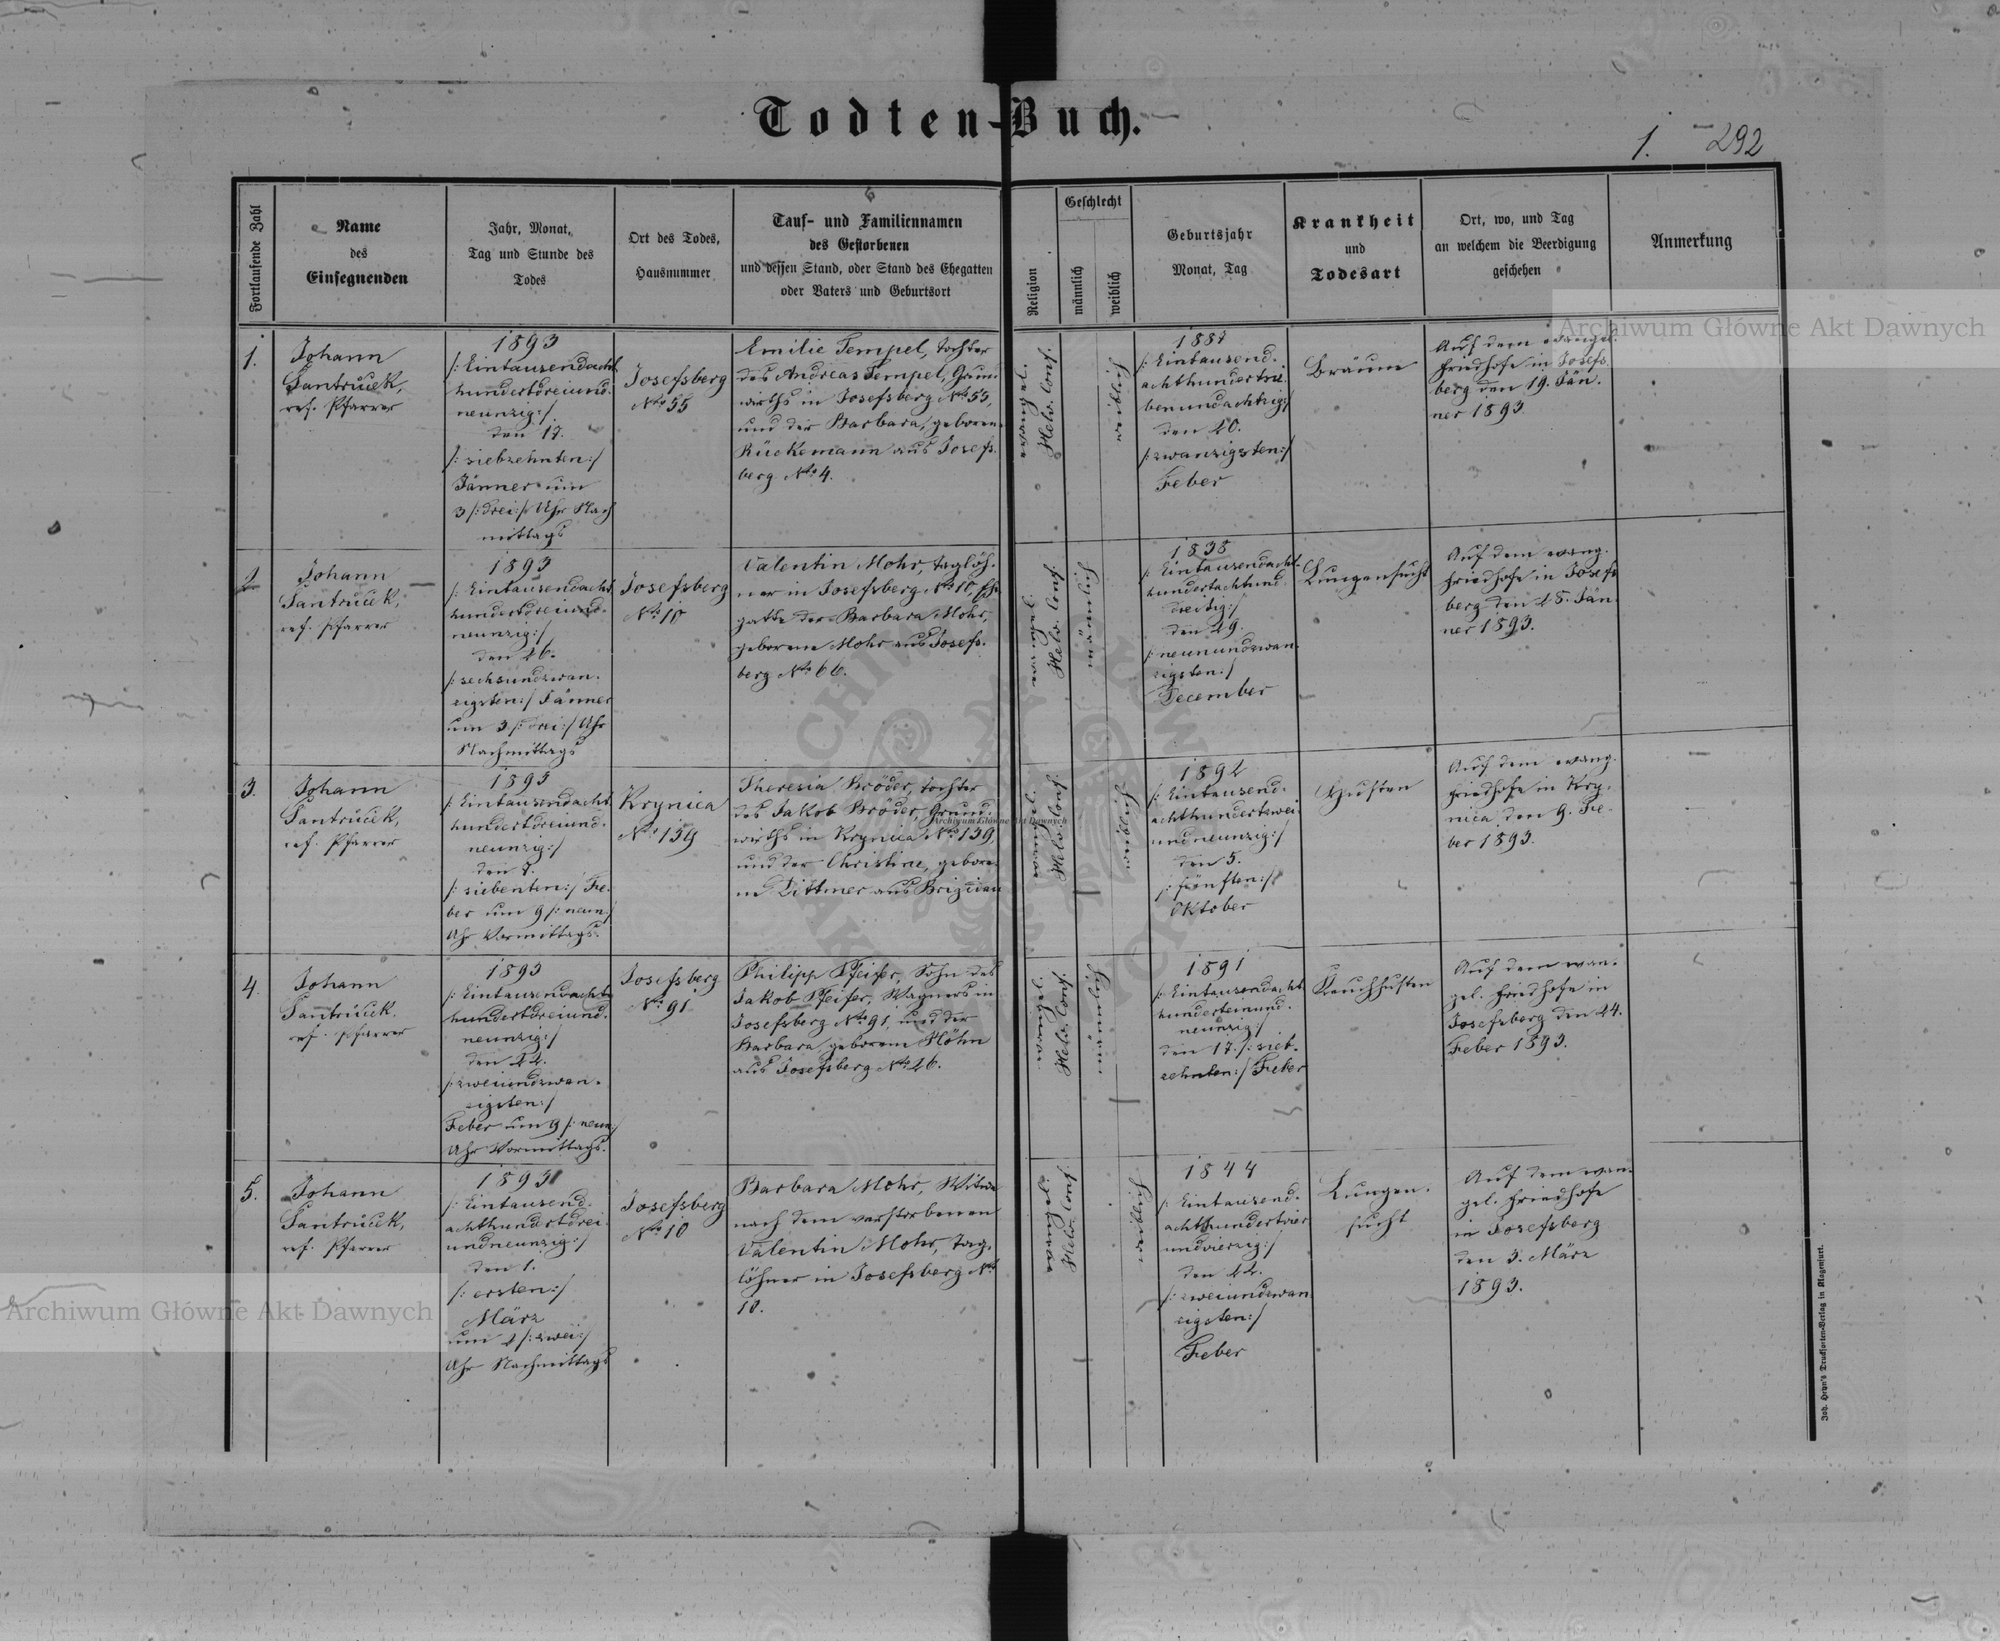 Todten-Buch.
1. 292
Fortlaufende Zahl
Name
des
Einsegnenden
Jahr, Monat,
Tag und Stunde des
Todes
Ort des Todes,
Hausnummer
Tauf- und Familiennamen
des Gestorbenen
und dessen Stand, oder Stand des Ehegatten
oder Vaters und Geburtsort
Religion
Geschlecht
männlich
weiblich
Geburtsjahr
Monat, Tag
Krankheit
und
Todesart
Ort, wo, und Tag
an welchem die Beerdigung
geschehen
Anmerkung
1.
Johann
Santrůček,
ref. Pfarrer
1893
/: Eintausendacht
hundertdreiund-
neunzig :/
den 17.
/: siebzehnten :/
Jänner um
3 /: drei :/ Uhr Nach
mittags
Josefsberg
No 55
Emilie Tempel, Tochter
des Andreas Tempel, Grund
wirths in Josefsberg No 55,
und der Barbara, geboren
Rückemann aus Josefs-
berg No 4.
evangel.
Helv. Conf.
weiblich
1887
/: Eintausend-
achthundertsie
benundachtzig :/
den 20.
/: zwanzigsten :/
Feber
Bräune
Auf dem evangel.
Friedhofe in Josefs
berg den 19. Jän-
ner 1893.
2
Johann
Santrůček,
ref. Pfarrer
1893
/: Eintausendacht
hundertdreiund-
neunzig :/
den 26.
/: sechsundzwan-
zigsten :/ Jänner
um 3 /: drei :/ Uhr
Nachmittags
Josefsberg
No 10
Valentin Mohr, Taglöh-
ner in Josefsberg No 10, Ehe-
gatte der Barbara Mohr,
geborene Mohr aus Josefs-
berg No 66.
evangel.
Helv. Conf.
männlich
1838
/: Eintausendacht-
hundertachtund-
dreißig :/
den 29.
/: neunundzwan
zigsten :/
December
Lungensucht
Auf dem evang.
Friedhofe in Josefs
berg den 28. Jän-
ner 1893.
3.
Johann
Santrůček,
ref. Pfarrer
1893
/: Eintausendacht
hundertdreiund-
neunzig :/
den 7.
/: siebenten :/ Fe-
ber um 9 /: neun :/
Uhr Vormittags.
Krynica
No 139
Theresia Bröder, Tochter
des Jakob Bröder, Grund-
wirths in Krynica No 139,
und der Christine, gebore-
ne Dittmer aus Brigidau
evangel.
Helv. Conf.
weiblich
1892
/: Eintausend-
achthundertzwei-
undneunzig :/
den 5.
/: fünften :/
Oktober
Husten
Auf dem evang.
Friedhofe in Kry-
nica, den 9. Fe-
ber 1893.
4.
Johann
Santrůček.
ref. Pfarrer
1893
/: Eintausendacht
hundertdreiund-
neunzig :/
den 22.
/: zweiundzwan-
zigsten :/
Feber um 9 /: neun :/
Uhr Vormittags.
Josefsberg
No 91
Philipp Pfeifer, Sohn des
Jakob Pfeifer, Wagners in
Josefsberg No 91, und der
Barbara, geborene Höhn
aus Josefsberg No 26.
evangel.
Helv. Conf.
männlich
1891
/: Eintausendacht
hunderteinund-
neunzig :/
den 17. /: sieb-
zehnten :/ Feber
Keuchhusten
Auf dem evan-
gel. Friedhofe in
Josefsberg den 24.
Feber 1893.
5.
Johann
Santrůček,
ref. Pfarrer
1893
/: Eintausend-
achthundertdrei-
undneunzig :/
den 1.
/: ersten :/
März
um 2 /: zwei :/
Uhr Nachmittags
Josefsberg
No 10
Barbara Mohr, Witwe
nach dem verstorbenen
Valentin Mohr, Tag-
löhner in Josefsberg No
10.
evangel.
Helv. Conf.
weiblich
1844
/: Eintausend-
achthundertvier
undvierzig :/
den 22.
/: zweiundzwan
zigsten :/
Feber
Lungen-
sucht
Auf dem evan-
gel. Friedhofe
in Josefsberg
den 3. März
1893.
Joh. Heyn's Drucksorten-Verlag in Klagenfurt.
Archiwum Główne Akt Dawnych
Archiwum Główne Akt Dawnych
Archiwum Główne Akt Dawnych